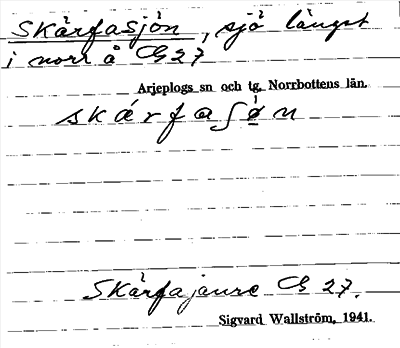 Skärfasjön, sjö längst
i norr å CG 27
Arjeplogs sn och tg. Norrbottens län.
skærfaʃøn
Skärfajaure CG 27.
Sigvard Wallström, 1941.